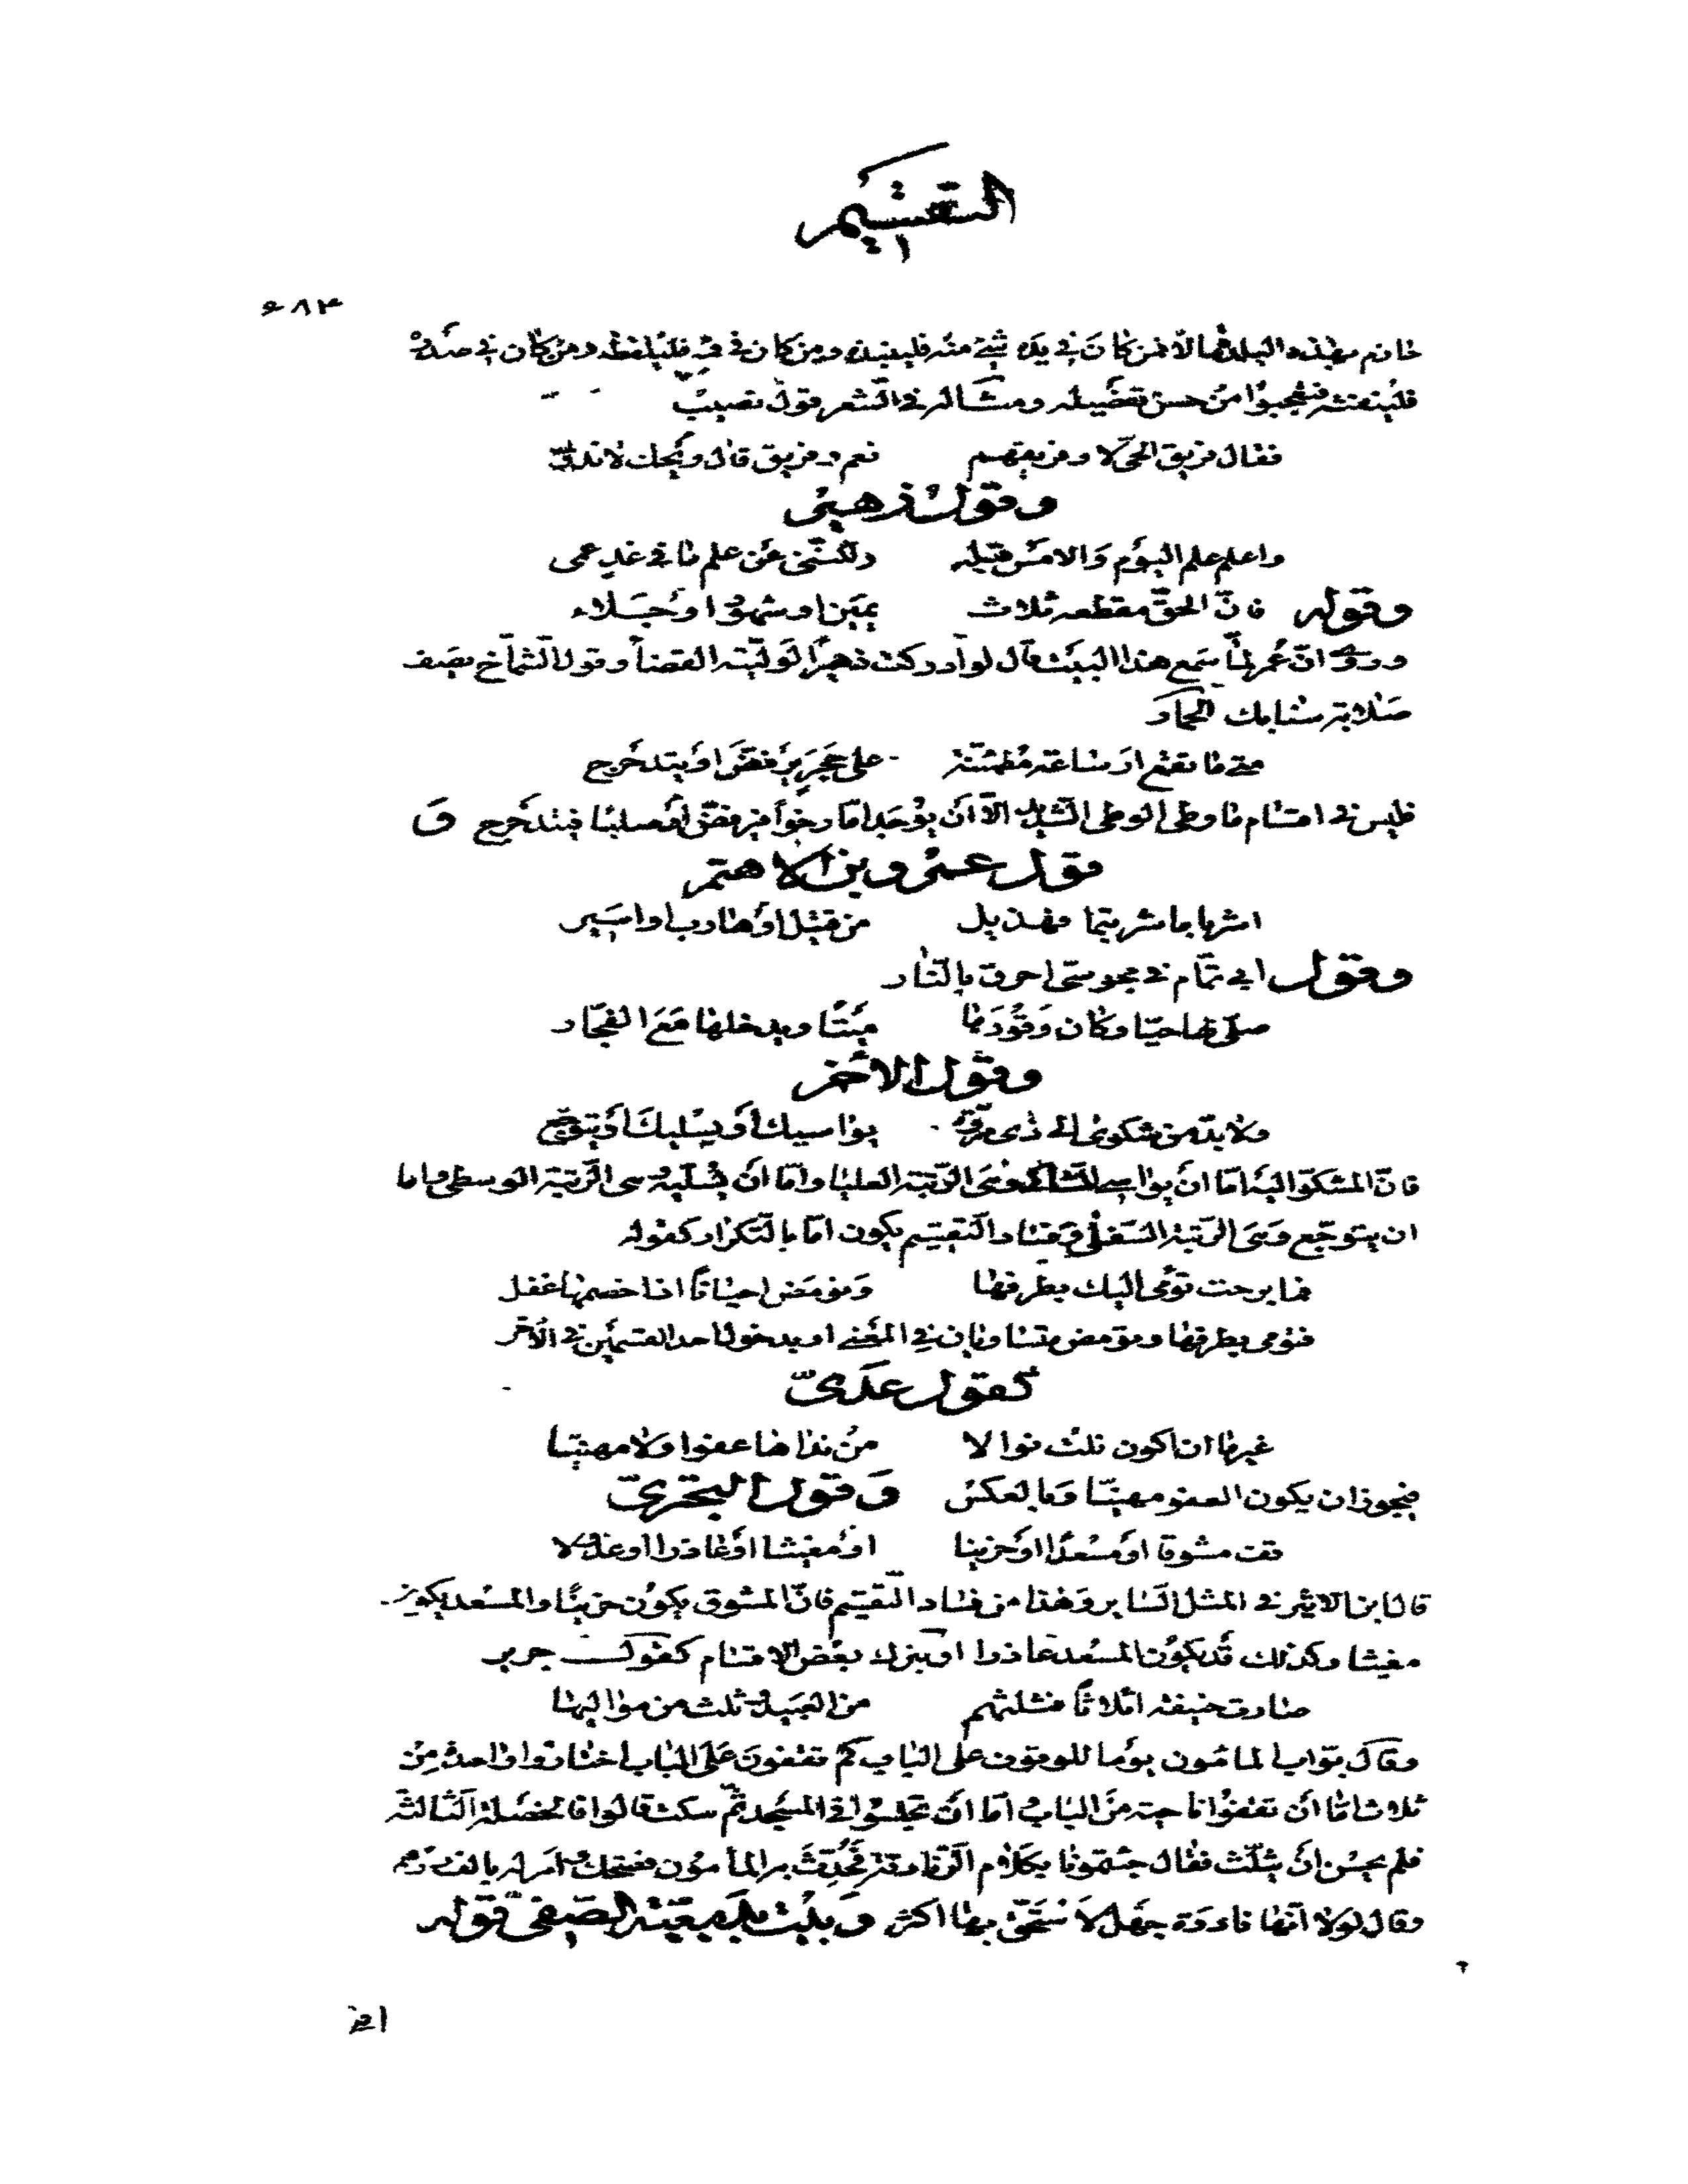 التقسيم
٦٨٤
خازم بهذه البلدة مالا فمن كان في يده شيء منه فلينبذه ومن كان في فيه فليلفظه ومن كان في صدره
فلينفثه فتعجبوا من حسن تفصيله ومثاله في الشعر قول نصيب
فقال فريق الحي لا وفريقهم نعم وفريق قال ويحك لا ندري
وقول زهير
واعلم علم اليوم والامس قبله ولكنني عن علم ما في غد عمى
وقوله فان الحق مقطعه ثلاث يمين او شهود او جلاء
وروي ان عمر لما سمع هذا البيت قال لو ادركت زهيرا لوليته القضا وقول الشماخ يصف
صلابة سنابك الحمار
متى ما تقع ارساغه مطمئنة على حجر يرفض او يتدحرج
فليس في اقسام ما وطي الوطي الشديد الا ان يوجد اما رخوا فيرفض او صلبا فيتدحرج و
قول عمرو بن الاهتم
اشربا ما شربتما فهذيل من قتيل او هارب او اسير
وقول ابي تمام في مجوسي احرق بالنار
صلى لها حيا وكان وقودها ميتا ويدخلها مع الفجار
وقول الاخر
ولا بد من شكوى الى ذي مروة يواسيك او يسليك او يتوجع
فان المشكو اليه اما ان يواسي الشاكي وهي الرتبة العليا واما ان يسليه وهي الرتبة الوسطى واما
ان يتوجع وهي الرتبة السفلى وفساد التقسيم يكون اما بالتكرار كقوله
فما برحت تومى اليك بطرفها وتومض احيانا اذا خصمها غفل
فتومى بطرفها وتومض متساويان في المعنى او بدخول احد القسمين في الاخر
كقول عدي
غير ما ان اكون نلت نوالا من نداها عفوا ولا مهنيا
فيجوز ان يكون العفو مهنيا وبالعكس وقول البحتري
قف مشوقا او مسعدا او حزينا او مغيثا او عاذرا او عذولا
قال ابن الاثير في المثل السائر وهذا من فساد التقسيم فان المشوق يكون حزينا والمسعد يكون
مغيثا وكذلك قد يكون المسعد عاذرا او يترك بعض الاقسام كقول جرير
صارت حنيفة اثلاثا فثلثهم من العبيد وثلث من مواليها
وقال بواب المامون يوما للوقوف على الباب كم تقفون على الباب اختاروا واحدة من
ثلاث اما ان تقفوا ناحية من الباب اما ان تجلسوا في المسجد ثم سكت قالوا فالخصلة الثالثة
فلم يحسن ان يثلث فقال جئتمونا بكلام الزنادقة فحدث به المأمون فضحك وامر له بالف درهم
وقال لولا انها نادرة جهل لاستحق بها اكثر وبيت بديعية الصفي قوله